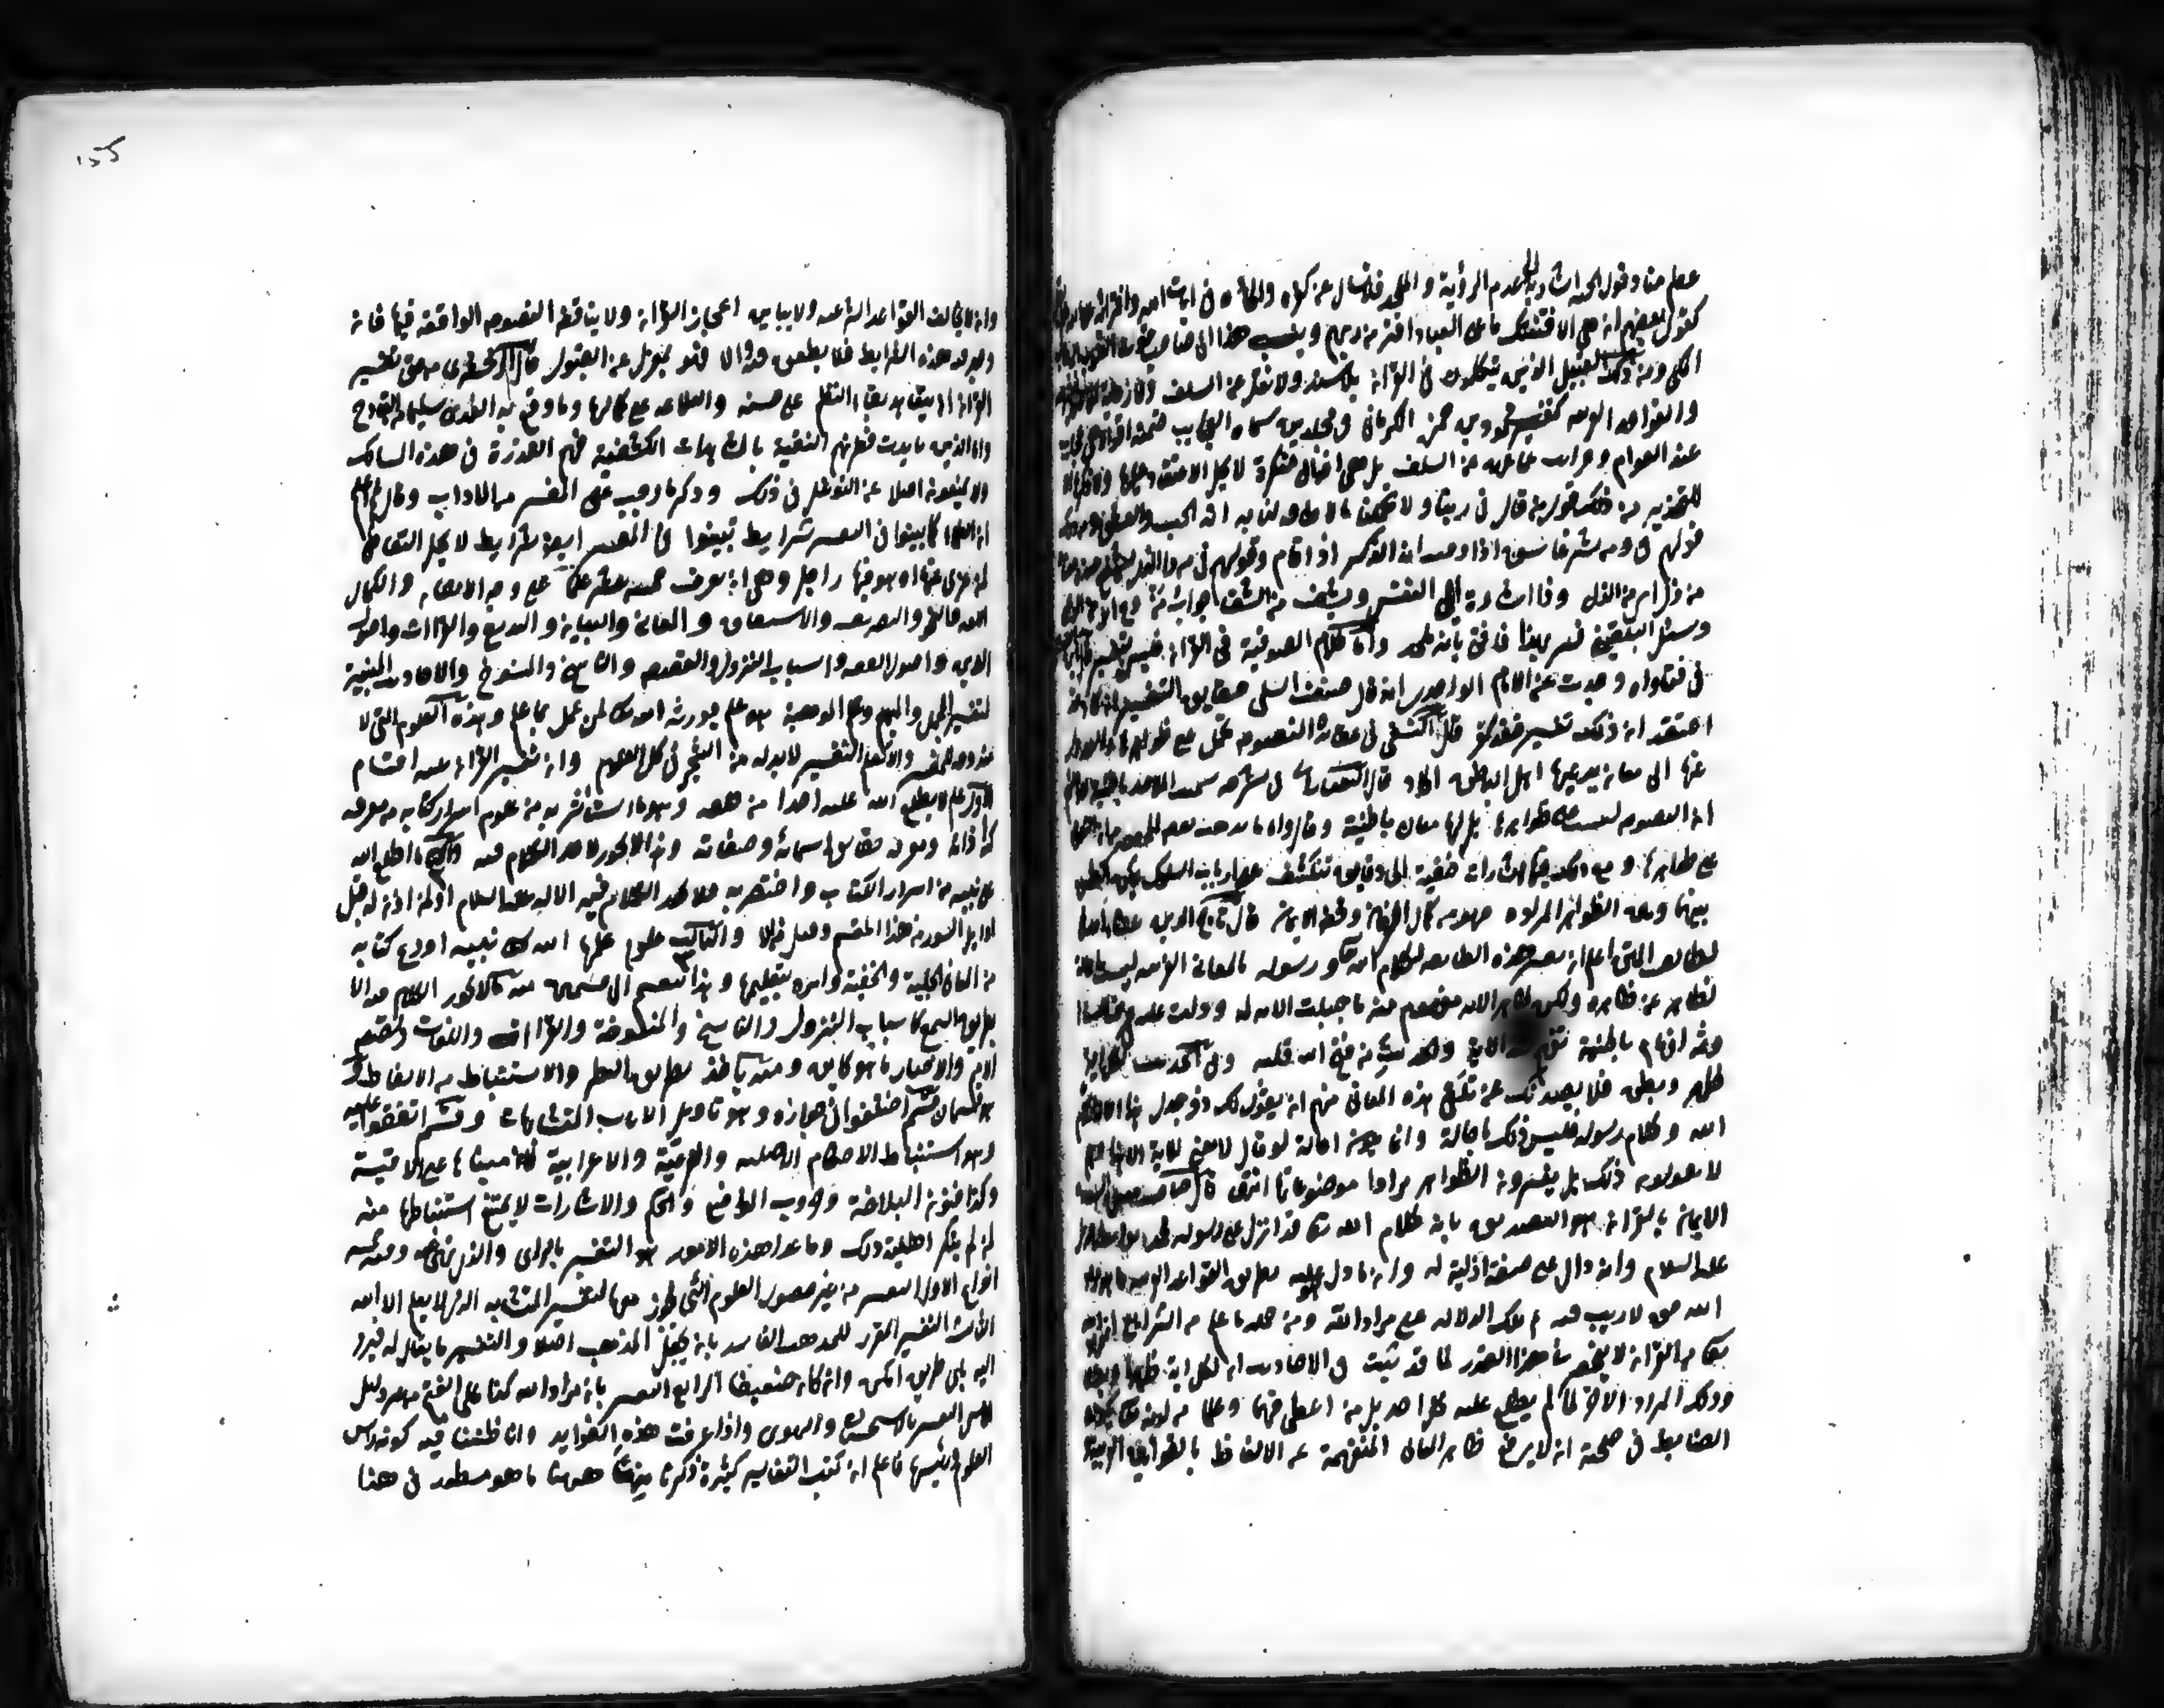 عظم من وقول الجنة اشار به الى عدم الرؤية والملحد فلا تسال عن كفره والحاده فى ايات الله وافترائه على الله
كقول بعضهم ان هى الا فتنتك ما على العباد اضر من ربهم وينسب هذا الى صاحب قوت القلوب
ومن ذلك القبيل الذين يتكلمون فى القرآن بلا سند ولا نقل عن السلف
والقواعد العربية كتفسير محمود بن حمزة الكرمانى فى مجلدين سماه العجايب ضمنه اقوالا هى عجايب
عند العوام وغرايب عما عهد من السلف بل هى اقوال منكرة لا يحل الاعتقاد عليها ولا ذكرها الا
للتحذير من ذلك قول من قال فى ربنا ولا تحملنا ما لا طاقة لنا به انه الحب والعشق ومن ذلك
قولهم فى ومن شر غاسق اذا وقب انه الذكر اذا قام وقولهم فى من ذا الذى يشفع عنده
من ذل اى من الذل وذا اشارة الى النفس ويشف من الشفا جواب من وع امر من الوعى
وسئل البلقينى عمن فسر بهذا فافتى بانه ملحد واما كلام الصوفية فى القرآن فليس بتفسير قال ابن الصلاح
فى فتاواه وجدت عن الامام الواحدى انه قال صنف السلمى حقايق التفسير ان كان قد
اعتقد ان ذلك تفسير فقد كفر قال النسفى فى عقائده النصوص تحمل على ظواهرها والعدول
عنها الى معان يدعيها اهل الباطن الحاد قال التفتازانى فى شرحه سميت الملاحدة باطنية لادعائهم
ان النصوص ليست على ظواهرها بل لها معان باطنية وقال واما ما يذهب اليه بعض المحققين من ان النصوص
على ظواهرها ومع ذلك فيها اشارات خفية الى دقايق تنكشف على ارباب السلوك يمكن التطبيق
بينها وبين الظواهر المرادة فهو من كمال العرفان ومحض الايمان قال تاج الدين عطاء الله
لطايف المنن اعلم ان تفسير هذه الطايفة لكلام الله تعالى ورسوله بالمعانى الغريبة ليست احالة
لظاهر عن ظاهره ولكن ظاهر الاية مفهوم منه ما جلبت الاية له ودلت عليه فى عرف اللسان
وثم افهام باطنة تفهم عند الاية والحديث لمن فتح الله قلبه وفى الحديث لكل آية
ظهر وبطن فلا يصدنك عن تلقى هذه المعانى منهم ان يقول لك ذو جدل هذا احالة لكلام
الله وكلام رسوله فليس ذلك باحالة وانما يكون احالة لو قال لا معنى للآية الا هذا وهم
لا يقولون ذلك بل يفسرون الظواهر مرادا موضوعاتها انتهى قال صاحب مفتاح السعادة
الايمان بالقرآن هو التصديق بانه كلام الله تعالى قد انزل على رسوله محمد بواسطة جبريل
عليه السلام وانه دال على صفة ازلية له وان ما دل عليه بطريق القواعد العربية مما هو مراد
الله حق لا ريب فيه ثم تلك الدلالة على مراد الله ومن جملة ما علم من الشرايع ان مراد الله
تعالى من القرآن لا ينحصر فى هذا القدر لما قد ثبت فى الاحاديث ان لكل اية ظهرا وبطنا
وذلك المراد الاخر لما لم يطلع عليه كل احد بل من اعطى فهما وعلما من لدنه تعالى يكون
الضابط فى صحته ان لا يرفع ظاهر المعانى المنفهمة عن الالفاظ بالقوانين العربية
وان لا يخالف القواعد الشرعية ولا يباين اعجاز القرآن ولا يناقض النصوص الواقعة فيها فان
وجد هذه الشرايط فلا يطعن فيه والا فهو بمعزل عن القبول قال الزمخشرى من حق تفسير
القرآن ان يتعاهد بقاء النظم على حسنه والبلاغة على كمالها وما وقع به التحدى سليما من القادح
واما الذين تايدت فطرتهم النقية بالمشاهدات الكشفية فهم القدوة فى هذه المسالك
ولا يمنعون اصلا عن التوغل فى ذلك وذكر ما وجب على المفسر من الاداب وقال ثم اعلم
ان العلماء كما بينوا فى التفسير شرايط بينوا فى المفسر ايضا شرايط لا يحل التعاطى
لمن عرى عنها او هو فيها راجل وهى ان يعرف خمسة عشر علما على وجه الاتقان والكمال
اللغة والنحو والتصريف والاشتقاق والمعانى والبيان والبديع والقراآت واصول
الدين واصول الفقه واسباب النزول والقصص والناسخ والمنسوخ والاحاديث المبينة
لتفسير المجمل والمبهم وعلم الموهبة وهو علم يورثه الله تعالى لمن عمل بما علم وهذه العلوم التى لا
مندوحة للمفسر والا فعلم التفسير لا بد له من التبحر فى كل العلوم وان تفسير القرآن ثلثة اقسام
الاول علم لم يطلع الله عليه احدا من خلقه وهو ما استاثر به من علوم اسرار كتابه من معرفة
كنه ذاته ومعرفة حقايق اسمائه وصفاته وهذا لا يجوز لاحد الكلام فيه والثانى ما اطلع الله
على نبيه من اسرار الكتاب واختصه به فلا يجوز الكلام فيه الا له عليه السلام او لمن اذن له قيل
اوايل السور من هذا القسم وقيل من الاول والثالث علوم علمها الله تعالى نبيه مما اودع كتابه
من المعانى الجلية والخفية وامره بتعليمها وهذا ينقسم الى قسمين منه ما لا يجوز الكلام فيه الا
بطريق السمع كاسباب النزول والناسخ والمنسوخ والقراآت واللغات وقصص
الامم والاخبار بما هو كاين ومنه ما يؤخذ بطريق النظر والاستنباط من الالفاظ و
هو قسمان قسم اختلفوا فى جوازه وهو تاويل الايات المتشابهات وقسم اتفقوا عليه
وهو استنباط الاحكام الاصلية والفرعية والاعرابية لان مبناها على الاقيسة
وكذا فنون البلاغة وضروب المواعظ والحكم والاشارات لا يمتنع استنباطها منه
لمن لم ينكر اهليته ذلك وما عدا هذه الامور هو التفسير بالراى والذى نهى عنه وفيه خمسة
انواع الاول التفسير من غير حصول العلوم التى يجوز معها التفسير الثانى تفسير المتشابه الذى لا يعلمه الا الله
الثالث التفسير المقرر للمذهب الفاسد بان يجعل المذهب اصلا والتفسير تابعا له فيرد
اليه باى طريق امكن وان كان ضعيفا الرابع التفسير بان مراد الله كذا على القطع من غير دليل
الخامس التفسير بالاستحسان والهوى واذا عرفت هذه الفوايد وان اطنبنا فيه لكونه راس
العلوم ورئيسها فاعلم ان كتب التفاسير كثيرة ذكرنا منها ههنا ما هو مسطور فى هذا